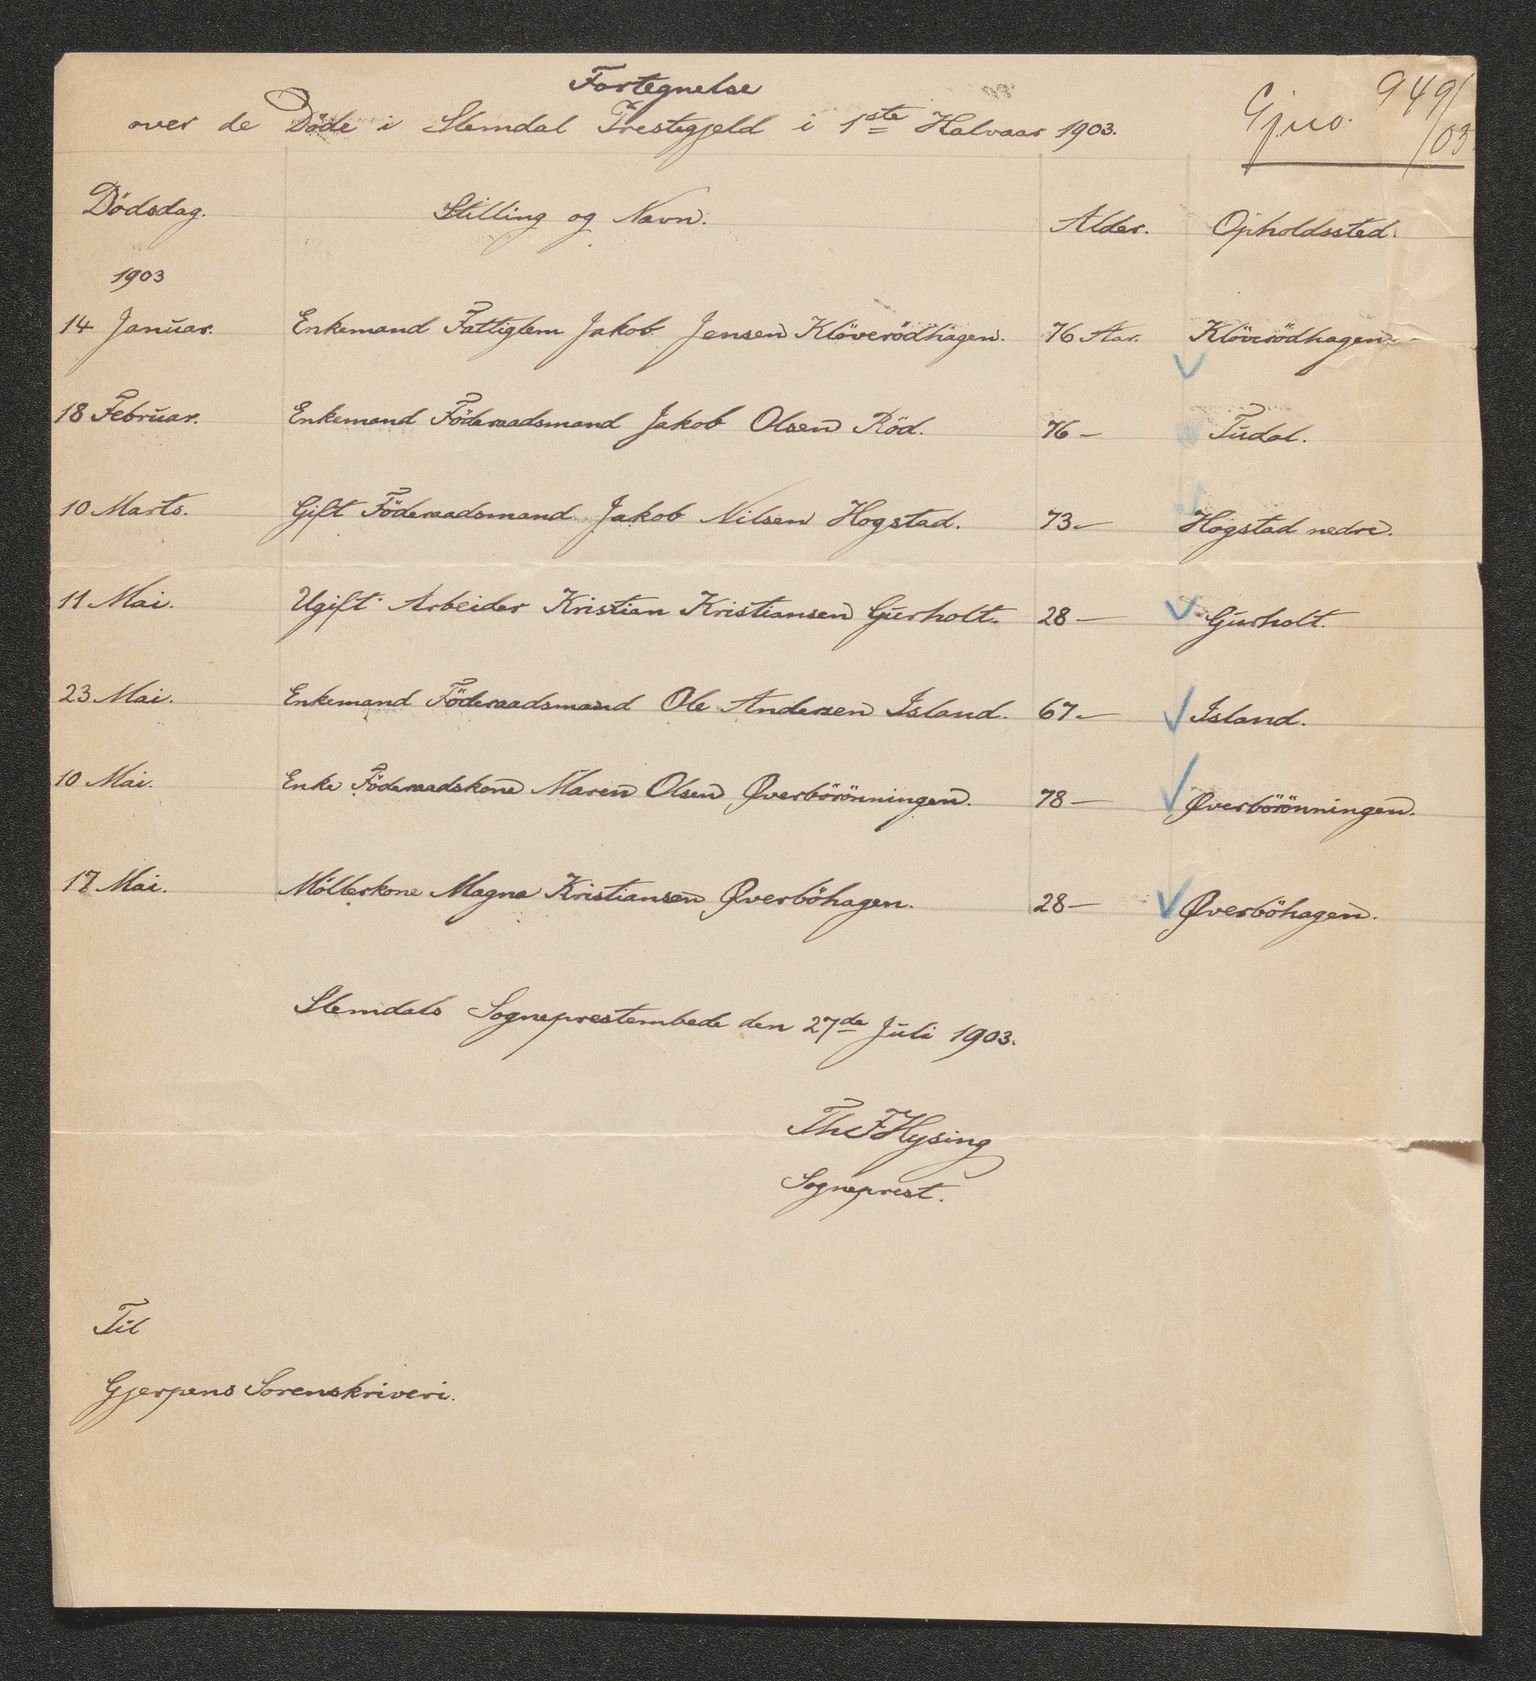 Fortegnelse
over de Døde i Slemdal Prestegjeld i 1ste Halvaar 1903.
Gj no. 949/03
Dödsdag. Stilling og Navn. Alder. Opholdssted.
1903
14 Januar. Enkemand Fattiglem Jakob Jensen Klöverödhagen. 76 Aar. Klöverödhagen.
18 Februar. Enkemand Föderaadsmand Jakob Olsen Röd. 76 — Tudal.
10 Marts. Gift Föderaadsmand Jakob Nilsen Hogstad. 73 — Hogstad nedre.
11 Mai. Ugift Arbeider Kristian Kristiansen Gurholt. 28 — Gurholt.
23 Mai. Enkemand Föderaadsmand Ole Andersen Island. 67 — Island.
10 Mai. Enke Föderaadskone Maren Olsen Øverbörönningen. 78 — Øverbörönningen.
17 Mai. Möllerkone Magna Kristiansen Øverböhagen. 28 — Øverböhagen.
Slemdals Sogneprestembede den 27de Juli 1903.
Th F Hysing
Sogneprest.
Til
Gjerpens Sorenskriveri.